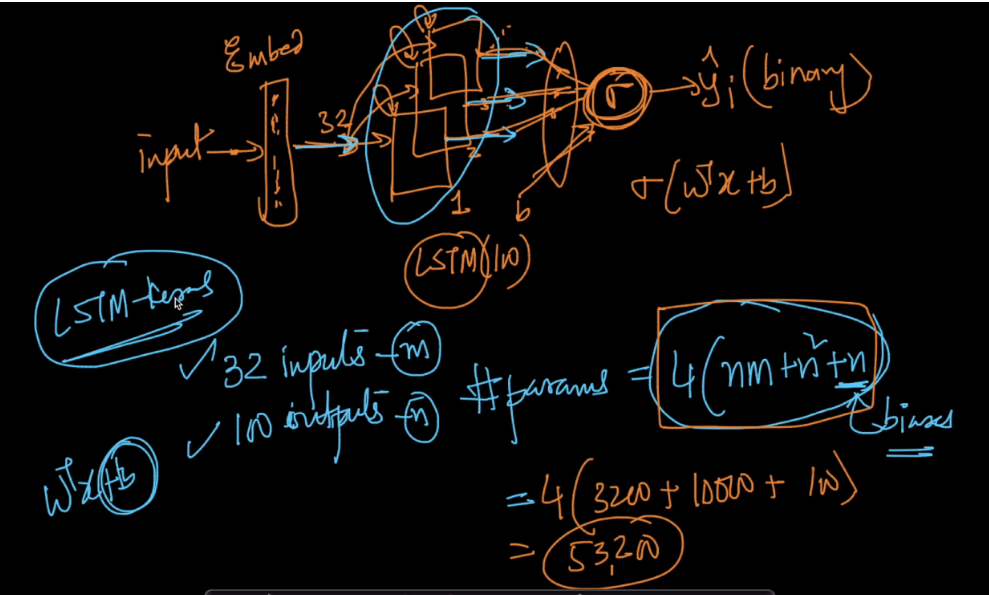 Embed
input
32
1
2
b
σ
ŷᵢ (binary)
σ(wᵀx+b)
LSTM(100)
LSTM-Keras
✓ 32 inputs - m
✓ 100 outputs - n
wᵀx+b
#params = 4(nm+n²+n)
biases
= 4(3200 + 10000 + 100)
= 53,200